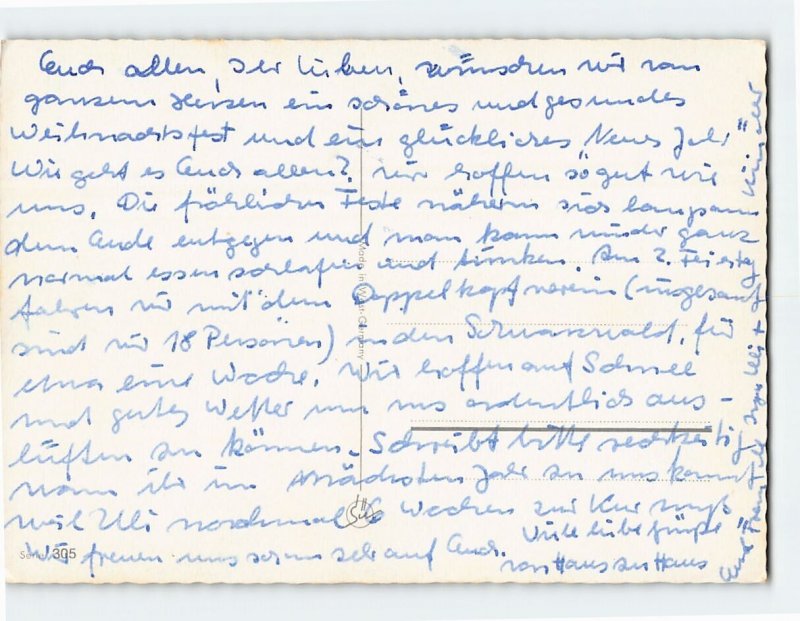 Euch allen, Ihr Lieben, wünschen wir von
ganzem Herzen ein schönes und gesundes
Weihnachtsfest und ein glückliches "Neues Jahr"
Wie geht es Euch allen? Wir hoffen so gut wie
uns. Die fröhlichen Feste nähern sich langsam
dem Ende entgegen und man kann wieder ganz
normal essen schlafen und trinken. Am 2. Feiertag
fahren wir mit dem Doppelkopfverein (insgesamt
sind wir 18 Personen) in den Schwarzwald, für
etwa eine Woche. Wir hoffen auf Schnee
und gutes Wetter um uns ordentlich aus-
lüften zu können. Schreibt bitte rechtzeitig
wann ihr im nächsten Jahr zu uns kommt
weil Uli nochmal 6 Wochen zur Kur muß
Wir freuen uns schon sehr auf Euch.
Viele liebe Grüße
von Haus zu Haus
Uli + Kinder
Made in West-Germany
Serie 305